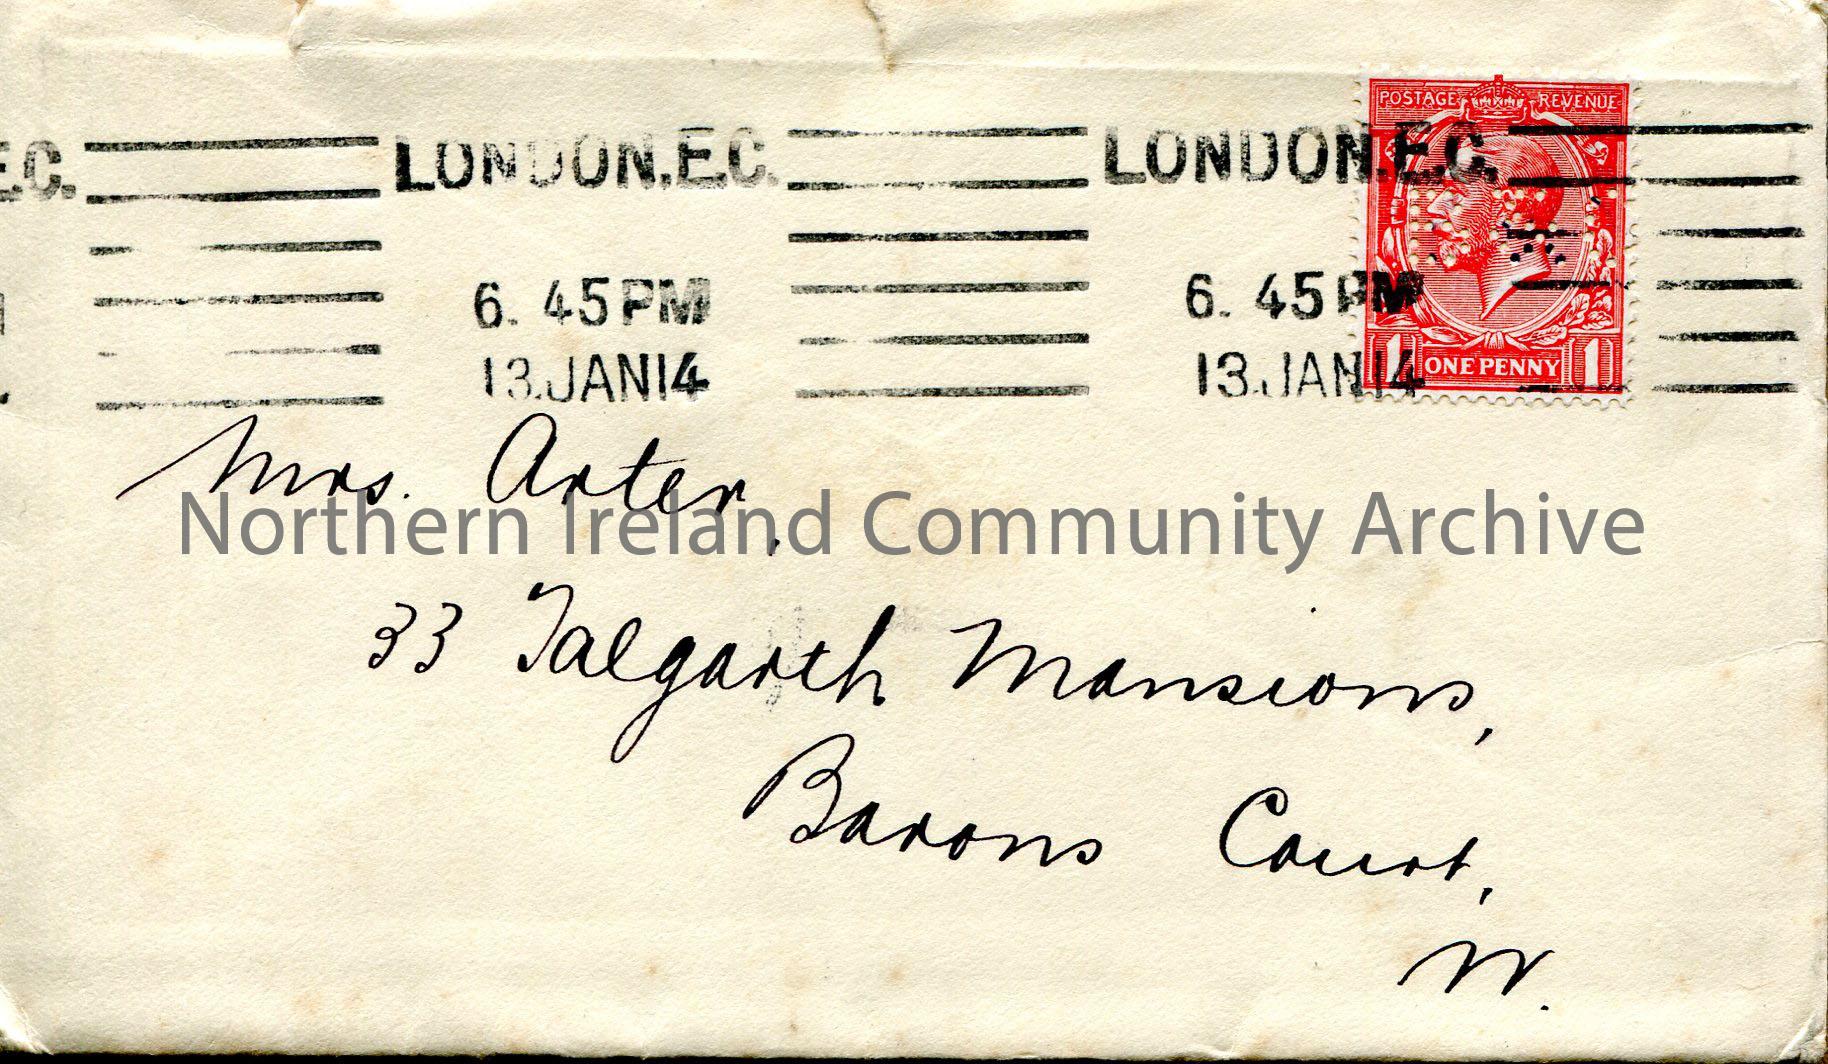 POSTAGE REVENUE
E.C. LONDON.E.C. LONDON.E.C.
6. 45PM 6. 45PM
13.JAN14 13.JAN14
1 ONE PENNY 1
Mrs. Arter,
Northern Ireland Community Archive
33 Talgarth Mansions,
Barons Court,
W.